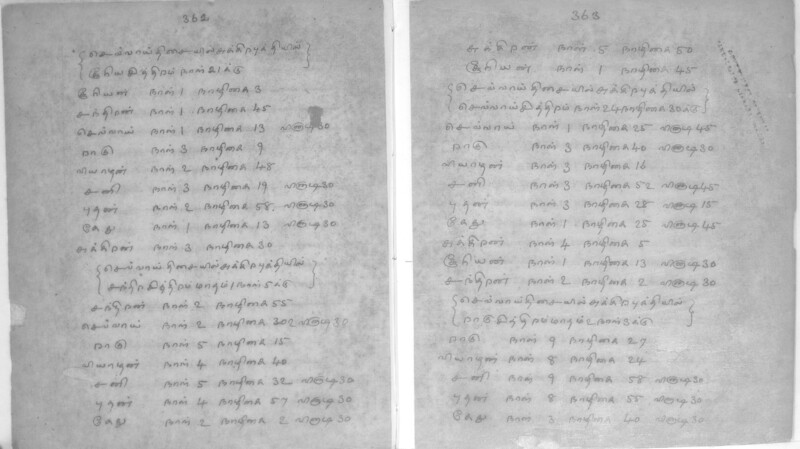 362
{செவ்வாய்திசையில்சுக்கிரபுத்தியில்}
{சூரியசித்திரம் நாள் 21க்கு}
சூரியன் நாள் 1 நாழிகை 3
சந்திரன் நாள் 1 நாழிகை 45
செவ்வாய் நாள் 1 நாழிகை 13 விநாடி 30
ராகு நாள் 3 நாழிகை 9
வியாழன் நாள் 2 நாழிகை 48
சனி நாள் 3 நாழிகை 19 விநாடி 30
புதன் நாள் 2 நாழிகை 58 விநாடி 30
கேது நாள் 1 நாழிகை 13 விநாடி 30
சுக்கிரன் நாள் 3 நாழிகை 30
{செவ்வாய்திசையில்சுக்கிரபுத்தியில்}
{சந்திரசித்திரம் மாதம் 1 நாள் 5க்கு}
சந்திரன் நாள் 2 நாழிகை 55
செவ்வாய் நாள் 2 நாழிகை 302 விநாடி 30
ராகு நாள் 5 நாழிகை 15
வியாழன் நாள் 4 நாழிகை 40
சனி நாள் 5 நாழிகை 32 விநாடி 30
புதன் நாள் 4 நாழிகை 57 விநாடி 30
கேது நாள் 2 நாழிகை 2 விநாடி 30
363
சுக்கிரன் நாள் 5 நாழிகை 50
சூரியன் நாள் 1 நாழிகை 45
{செவ்வாய்திசையில்சுக்கிரபுத்தியில்}
{செவ்வாய்சித்திரம் நாள் 24 நாழிகை 30க்கு}
செவ்வாய் நாள் 1 நாழிகை 25 விநாடி 45
ராகு நாள் 3 நாழிகை 40 விநாடி 30
வியாழன் நாள் 3 நாழிகை 16
சனி நாள் 3 நாழிகை 52 விநாடி 45
புதன் நாள் 3 நாழிகை 28 விநாடி 15
கேது நாள் 1 நாழிகை 25 விநாடி 45
சுக்கிரன் நாள் 4 நாழிகை 5
சூரியன் நாள் 1 நாழிகை 13 விநாடி 30
சந்திரன் நாள் 2 நாழிகை 2 விநாடி 30
{செவ்வாய்திசையில்சுக்கிரபுத்தியில்}
{ராகுசித்திரம் மாதம் 2 நாள் 3க்கு}
ராகு நாள் 9 நாழிகை 27
வியாழன் நாள் 8 நாழிகை 24
சனி நாள் 9 நாழிகை 58 விநாடி 30
புதன் நாள் 8 நாழிகை 55 விநாடி 30
கேது நாள் 3 நாழிகை 40 விநாடி 30